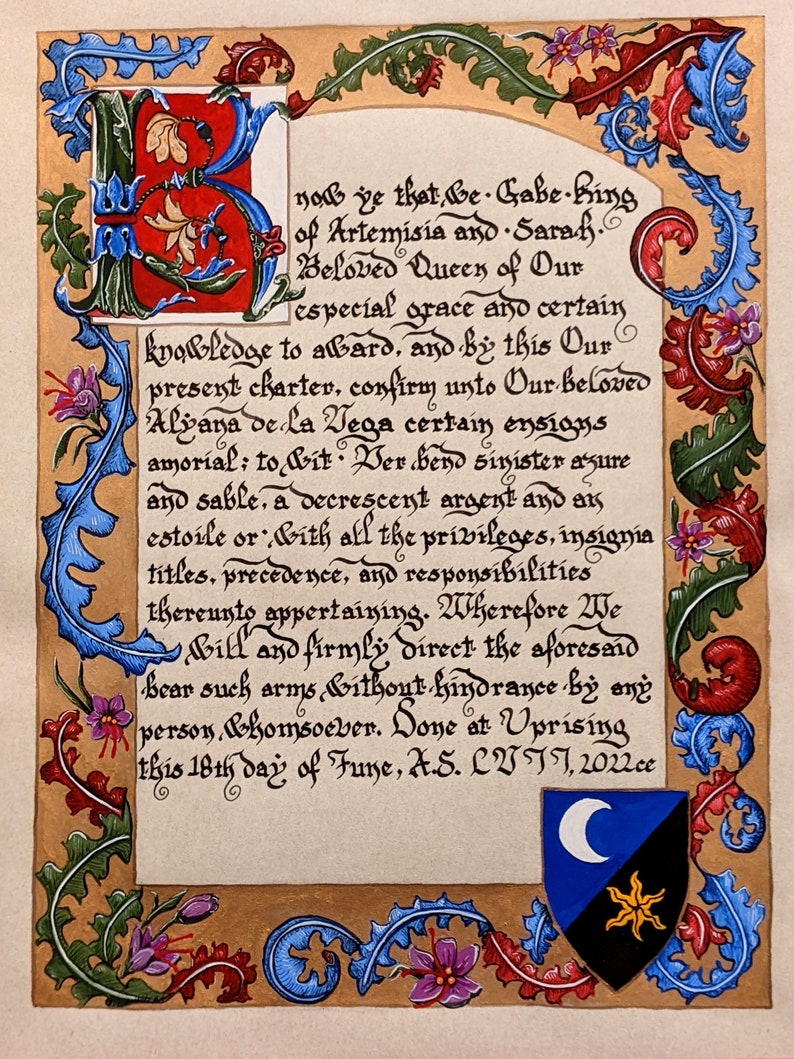 Know ye that we · Gabe · King
of Artemisia and · Sarah ·
Beloved Queen of Our
especial grace and certain
knowledge to award, and by this Our
present charter, confirm unto Our beloved
Alyana de La Vega certain ensigns
amorial; to wit · Per bend sinister azure
and sable, a decrescent argent and an
estoile or · With all the privileges, insignia
titles, precedence, and responsibilities
thereunto appertaining. Wherefore We
Will and firmly direct the aforesaid
bear such arms without hindrance by any
person whomsoever. Done at Uprising
this 18th day of June, A.S. LVII, 2022ce